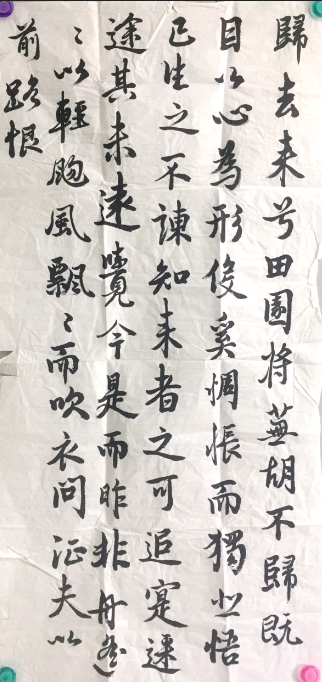 歸去来兮田園将蕪胡不歸既
自以心為形役奚惆悵而獨悲悟
已往之不諫知来者之可追寔迷
途其未遠覺今是而昨非舟遙
〻以輕颺風飄〻而吹衣问征夫以
前路恨